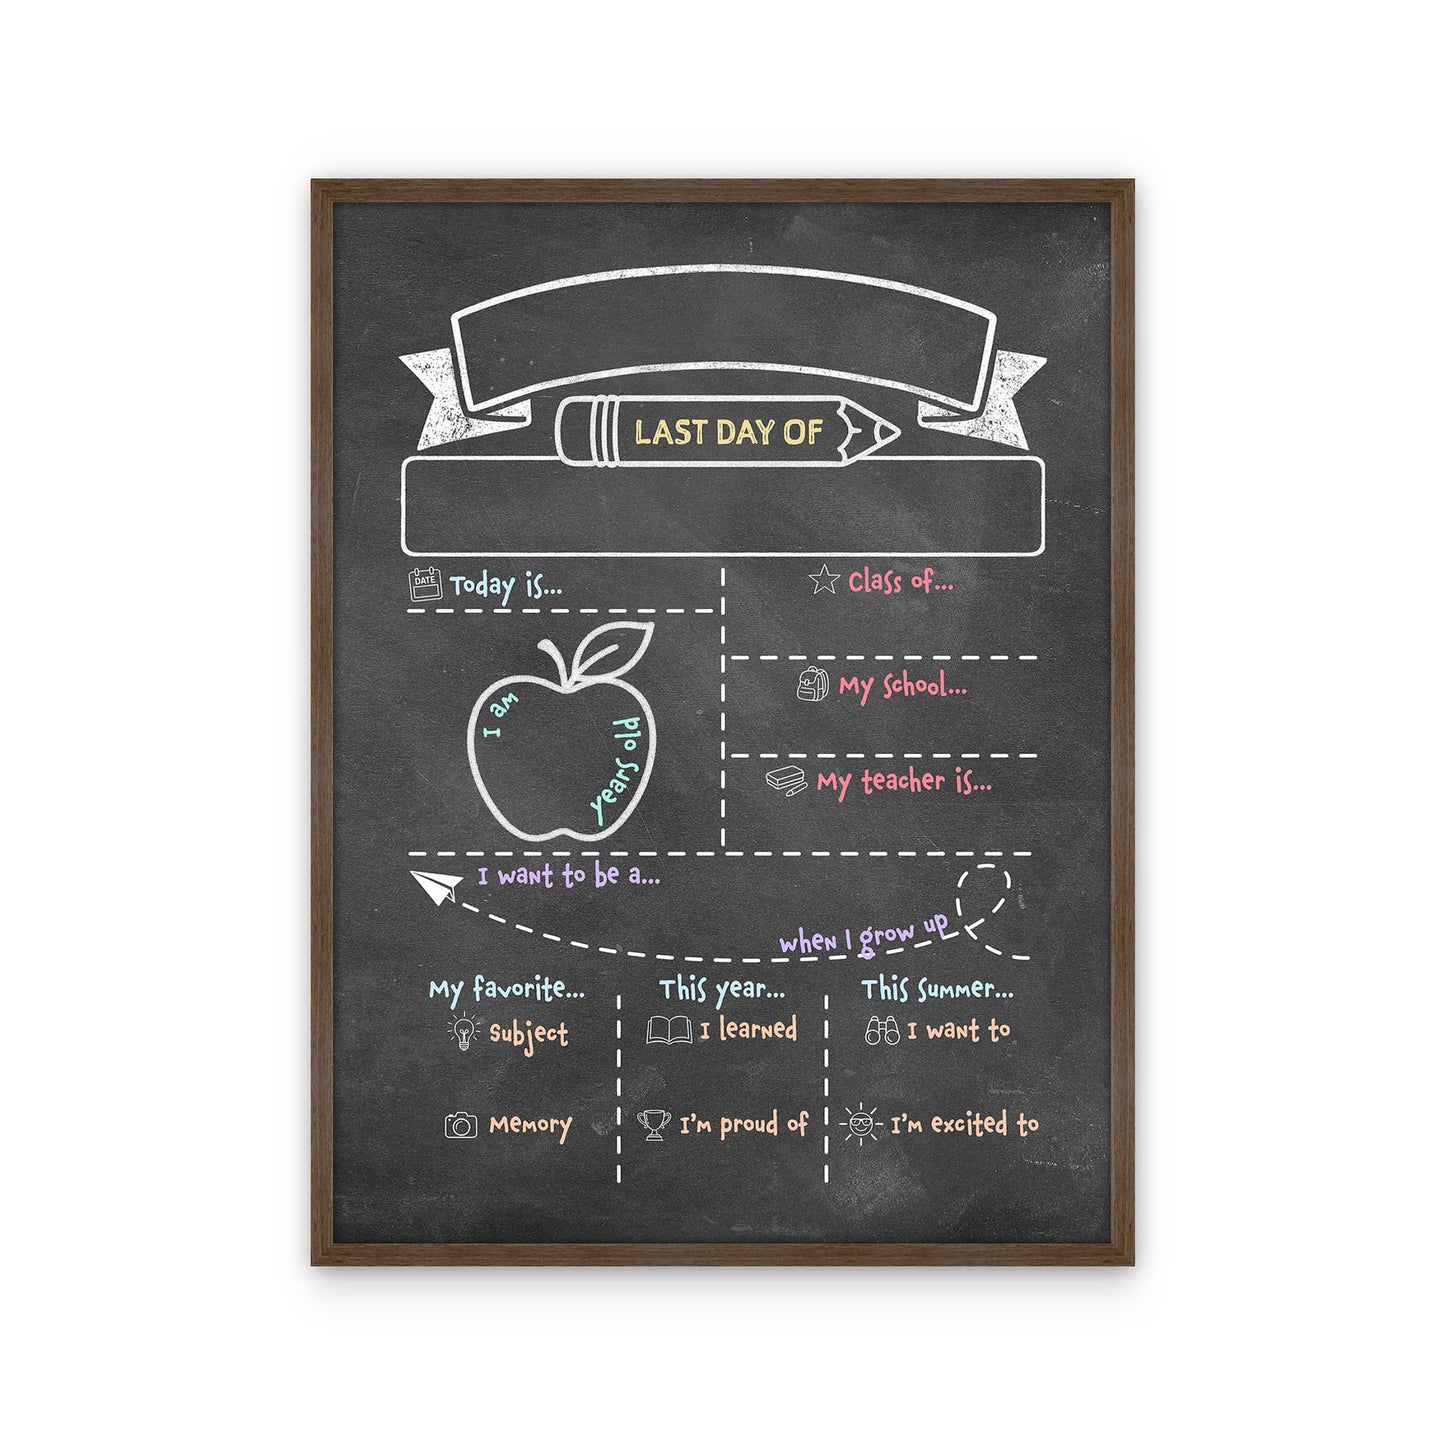 LAST DAY OF
DATE
Today is...
Class of...
I am
years old
My school...
My teacher is...
I want to be a...
when I grow up
My favorite...
Subject
Memory
This year...
I learned
I'm proud of
This Summer...
I want to
I'm excited to